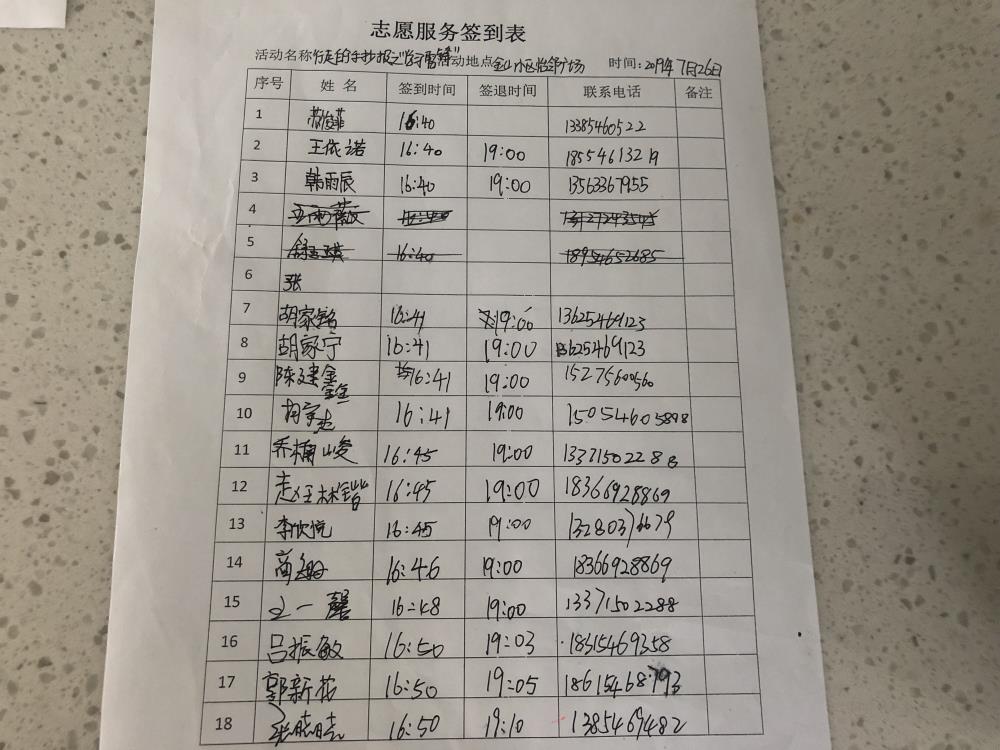 志愿服务签到表
活动名称 行走的手抄报之 活动地点 金山小区怡邻广场 时间:2019年7月26日
序号 姓名 签到时间 签退时间 联系电话 备注
1 16:40 13385460522
2 王依诺 16:40 19:00 18554613219
3 韩雨辰 16:40 19:00 13563367955
4
5 16:40 18954652685
6 张
7 胡家铭 16:41 19:00 13625469123
8 胡家宁 16:41 19:00 13625469123
9 陈建鑫 16:41 19:00 15275600560
10 16:41 19:00 15054605898
11 乔楠峻 16:45 19:00 13371502288
12 赵王林锴 16:45 19:00 18366928869
13 李欣悦 16:45 19:00 13280376679
14 商 16:46 19:00 18366928869
15 一馨 16:48 19:00 13371502288
16 吕振敏 16:50 19:03 18315469358
17 郭新花 16:50 19:05 18615468793
18 张 16:50 19:10 1385469482